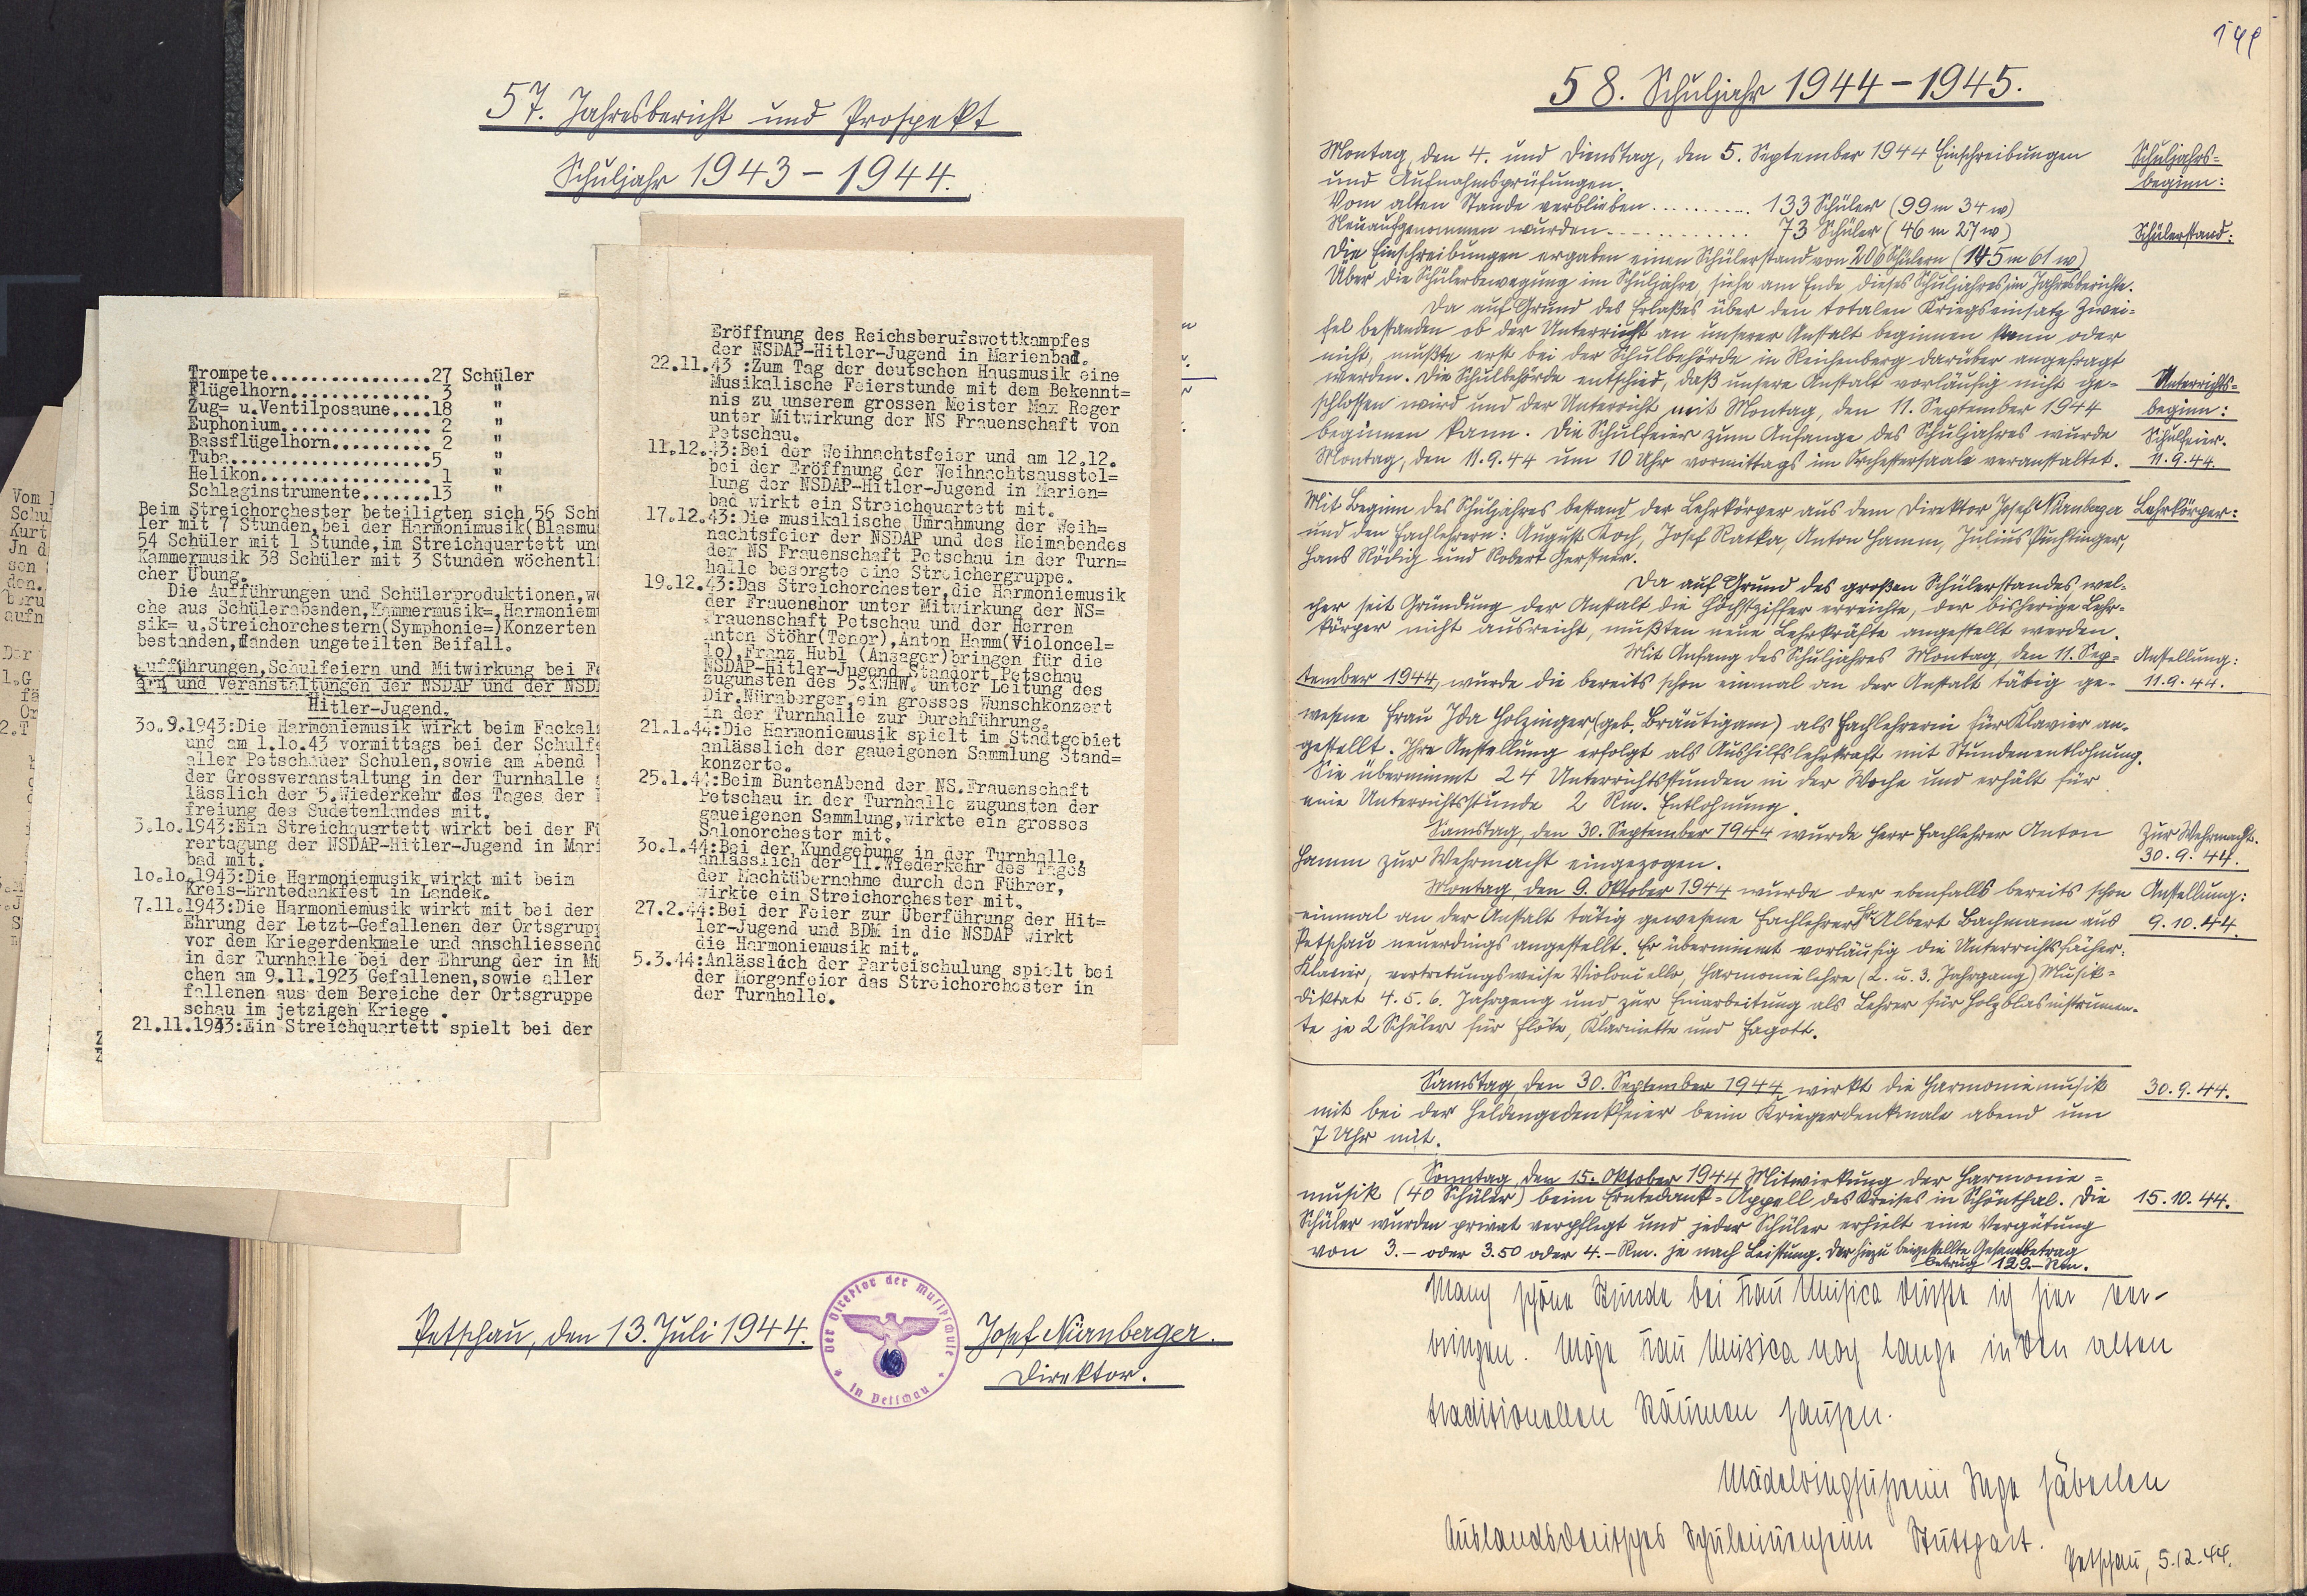 57. Jahresbericht und Prospekt
Schuljahr 1943 - 1944.
Trompete.................27 Schüler
Flügelhorn............... 3 "
Zug= u.Ventilposaune....18 "
Euphonium................ 2 "
Bassflügelhorn........... 2 "
Tuba.....................5 "
Helikon.................. 1 "
Schlaginstrumente.......13 "
Beim Streichorchester beteiligten sich 56 Sch
ler mit 7 Stunden,bei der Harmonimusik(Blasmu
54 Schüler mit 1 Stunde,im Streichquartett un
Kammermusik 38 Schüler mit 3 Stunden wöchentl
cher Übung.
Die Aufführungen und Schülerproduktionen,w
che aus Schülerabenden,Kammermusik=,Harmoniem
sik= u.Streichorchestern(Symphonie=)Konzerten
bestanden,fanden ungeteilten Beifall.
Aufführungen,Schulfeiern und Mitwirkung bei Fe
ern und Veranstaltungen der NSDAP und der NSD
Hitler-Jugend.
30.9.1943:Die Harmoniemusik wirkt beim Fackel
und am 1.10.43 vormittags bei der Schulf
aller Petschauer Schulen,sowie am Abend
der Grossveranstaltung in der Turnhalle
lässlich der 5.Wiederkehr des Tages der
freiung des Sudetenlandes mit.
3.10.1943:Ein Streichquartett wirkt bei der Fü
rertagung der NSDAP-Hitler-Jugend in Mari
bad mit.
10.10.1943:Die Harmoniemusik wirkt mit beim
Kreis-Erntedankfest in Landek.
7.11.1943:Die Harmoniemusik wirkt mit bei der
Ehrung der Letzt-Gefallenen der Ortsgrup
vor dem Kriegerdenkmale und anschliessend
in der Turnhalle bei der Ehrung der in Mü
chen am 9.11.1923 Gefallenen,sowie aller
fallenen aus dem Bereiche der Ortsgruppe
schau im jetzigen Kriege .
21.11.1943:Ein Streichquartett spielt bei der
Eröffnung des Reichsberufswettkampfes
der NSDAP-Hitler-Jugend in Marienbad.
22.11.43 :Zum Tag der deutschen Hausmusik eine
Musikalische Feierstunde mit dem Bekennt=
nis zu unserem grossen Meister Max Reger
unter Mitwirkung der NS Frauenschaft von
Petschau.
11.12.43:Bei der Weihnachtsfeier und am 12.12.
bei der Eröffnung der Weihnachtsausstel=
lung der NSDAP-Hitler-Jugend in Marien=
bad wirkt ein Streichquartett mit.
17.12.43:Die musikalische Umrahmung der Weih=
nachtsfeier der NSDAP und des Heimabendes
der NS Frauenschaft Petschau in der Turn=
halle besorgte eine Streichergruppe.
19.12.43:Das Streichorchester,die Harmoniemusik
der Frauenchor unter Mitwirkung der NS=
Frauenschaft Petschau und der Herren
Anton Stöhr(Tenor),Anton Hamm(Violoncel=
lo),Franz Hubl (Ansager)bringen für die
NSDAP-Hitler-Jugend Standort Petschau
zugunsten des 5.KWHW. unter Leitung des
Dir.Nürnberger,ein grosses Wunschkonzert
in der Turnhalle zur Durchführung.
21.1.44:Die Harmoniemusik spielt im Stadtgebiet
anlässlich der gaueigenen Sammlung Stand=
konzerte.
25.1.44:Beim BuntenAbend der NS.Frauenschaft
Petschau in der Turnhalle zugunsten der
gaueigenen Sammlung,wirkte ein grosses
Salonorchester mit.
30.1.44:Bei der Kundgebung in der Turnhalle,
anlässlich der 11.Wiederkehr des Tages
der Machtübernahme durch den Führer,
wirkte ein Streichorchester mit.
27.2.44:Bei der Feier zur Überführung der Hit=
ler-Jugend und BDM in die NSDAP wirkt
die Harmoniemusik mit.
5.3.44:Anlässlich der Parteischulung spielt bei
der Morgenfeier das Streichorchester in
der Turnhalle.
Petschau, den 13. Juli 1944.
Der Direktor der Musikschule
in Petschau
Josef Nürnberger.
Direktor.
58. Schuljahr 1944 - 1945.
Montag, den 4. und Dienstag, den 5. September 1944 Einschreibungen
und Aufnahmsprüfungen.
Schuljahrs=
beginn:
Vom alten Stande verblieben .......... 133 Schüler (99 m 34 w)
Neuaufgenommen wurden ............ 73 Schüler (46 m 27 w)
Schülerstand:
Die Einschreibungen ergaben einen Schülerstand von 206 Schülern (145 m 61 w)
Über die Schülerbewegung im Schuljahre, siehe am Ende dieses Schuljahres im Jahresberichte.
Da auf Grund des Erlaßes über den totalen Kriegseinsatz Zwei=
fel bestanden ob der Unterricht an unserer Anstalt beginnen kann oder
nicht, mußte erst bei der Schulbehörde in Reichenberg darüber angefragt
werden. Die Schulbehörde entschied, daß unsere Anstalt vorläufig nicht ge=
schlossen wird und der Unterricht mit Montag, den 11. September 1944
beginnen kann. Die Schulfeier zum Anfange des Schuljahres wurde
Montag, den 11.9.44 um 10 Uhr vormittags im Orchestersaale veranstaltet.
Unterrichts=
beginn:
Schulfeier.
11.9.44.
Mit Beginn des Schuljahres bestand der Lehrkörper aus dem Direktor Josef Nürnberger
und den Fachlehrern: August Koch, Josef Ratka, Anton Hamm, Julius Puchtinger,
Hans Rödig und Robert Gerstner.
Lehrkörper:
Da auf Grund des großen Schülerstandes, wel=
cher seit Gründung der Anstalt die Höchstziffer erreichte, der bisherige Lehr=
körper nicht ausreicht, mußten neue Lehrkräfte angestellt werden.
Mit Anfang des Schuljahres Montag, den 11. Sep=
tember 1944, wurde die bereits schon einmal an der Anstalt tätig ge=
wesene Frau Ida Holzinger (geb. Bräutigam) als Fachlehrerin für Klavier an=
gestellt. Ihre Anstellung erfolgt als Aushilfslehrkraft mit Stundenentlohnung.
Sie übernimmt 24 Unterrichtsstunden in der Woche und erhält für
eine Unterrichtsstunde 2 Rm. Entlohnung.
Anstellung:
11.9.44.
Samstag, den 30. September 1944 wurde Herr Fachlehrer Anton
Hamm zur Wehrmacht eingezogen.
Zur Wehrmacht.
30.9.44.
Montag, den 9. Oktober 1944 wurde der ebenfalls bereits schon
einmal an der Anstalt tätig gewesene Fachlehrer Albert Bachmann aus
Petschau neuerdings angestellt. Er übernimmt vorläufig die Unterrichtsfächer:
Klavier, vertretungsweise Violoncello, Harmonielehre (2. u. 3. Jahrgang) Musik=
diktat 4. 5. 6. Jahrgang und zur Einarbeitung als Lehrer für Holzblasinstrumen=
te je 2 Schüler für Flöte, Klarinette und Fagott.
Anstellung:
9.10.44.
Samstag, den 30. September 1944 wirkt die Harmoniemusik
mit bei der Heldengedenkfeier beim Kriegerdenkmale abend um
7 Uhr mit.
30.9.44.
Sonntag, den 15. Oktober 1944 Mitwirkung der Harmonie=
musik (40 Schüler) beim Erntedank=Appell des Kreises in Schönthal. Die
Schüler wurden privat verpflegt und jeder Schüler erhielt eine Vergütung
von 3.- oder 3.50 oder 4.- Rm. je nach Leistung. Der hiezu beigestellte Gesamtbetrag
betrug 129.- Rm.
15.10.44.
Manch schöne Stunde bei Frau Musica durfte ich hier ver-
bringen. Möge Frau Musica noch lange in den alten
traditionellen Räumen hausen.
Mädelringführerin Inge
Auslandsdeutsches Schülerinnenheim Stuttgart.
Petschau, 5.12.44.